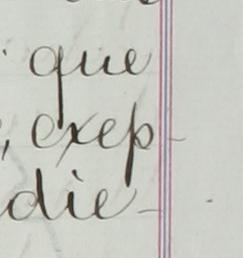 que
, exep-
die-